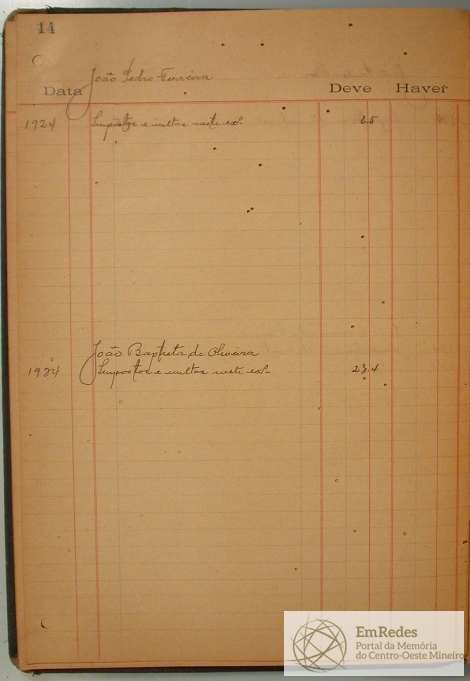 14
João Pedro Ferreira
Data Deve Haver
1924 Impostos e multas neste ex.
João Baptista de Oliveira
1924 Impostos e multas neste ex.
EmRedes
Portal da Memória
do Centro-Oeste Mineiro